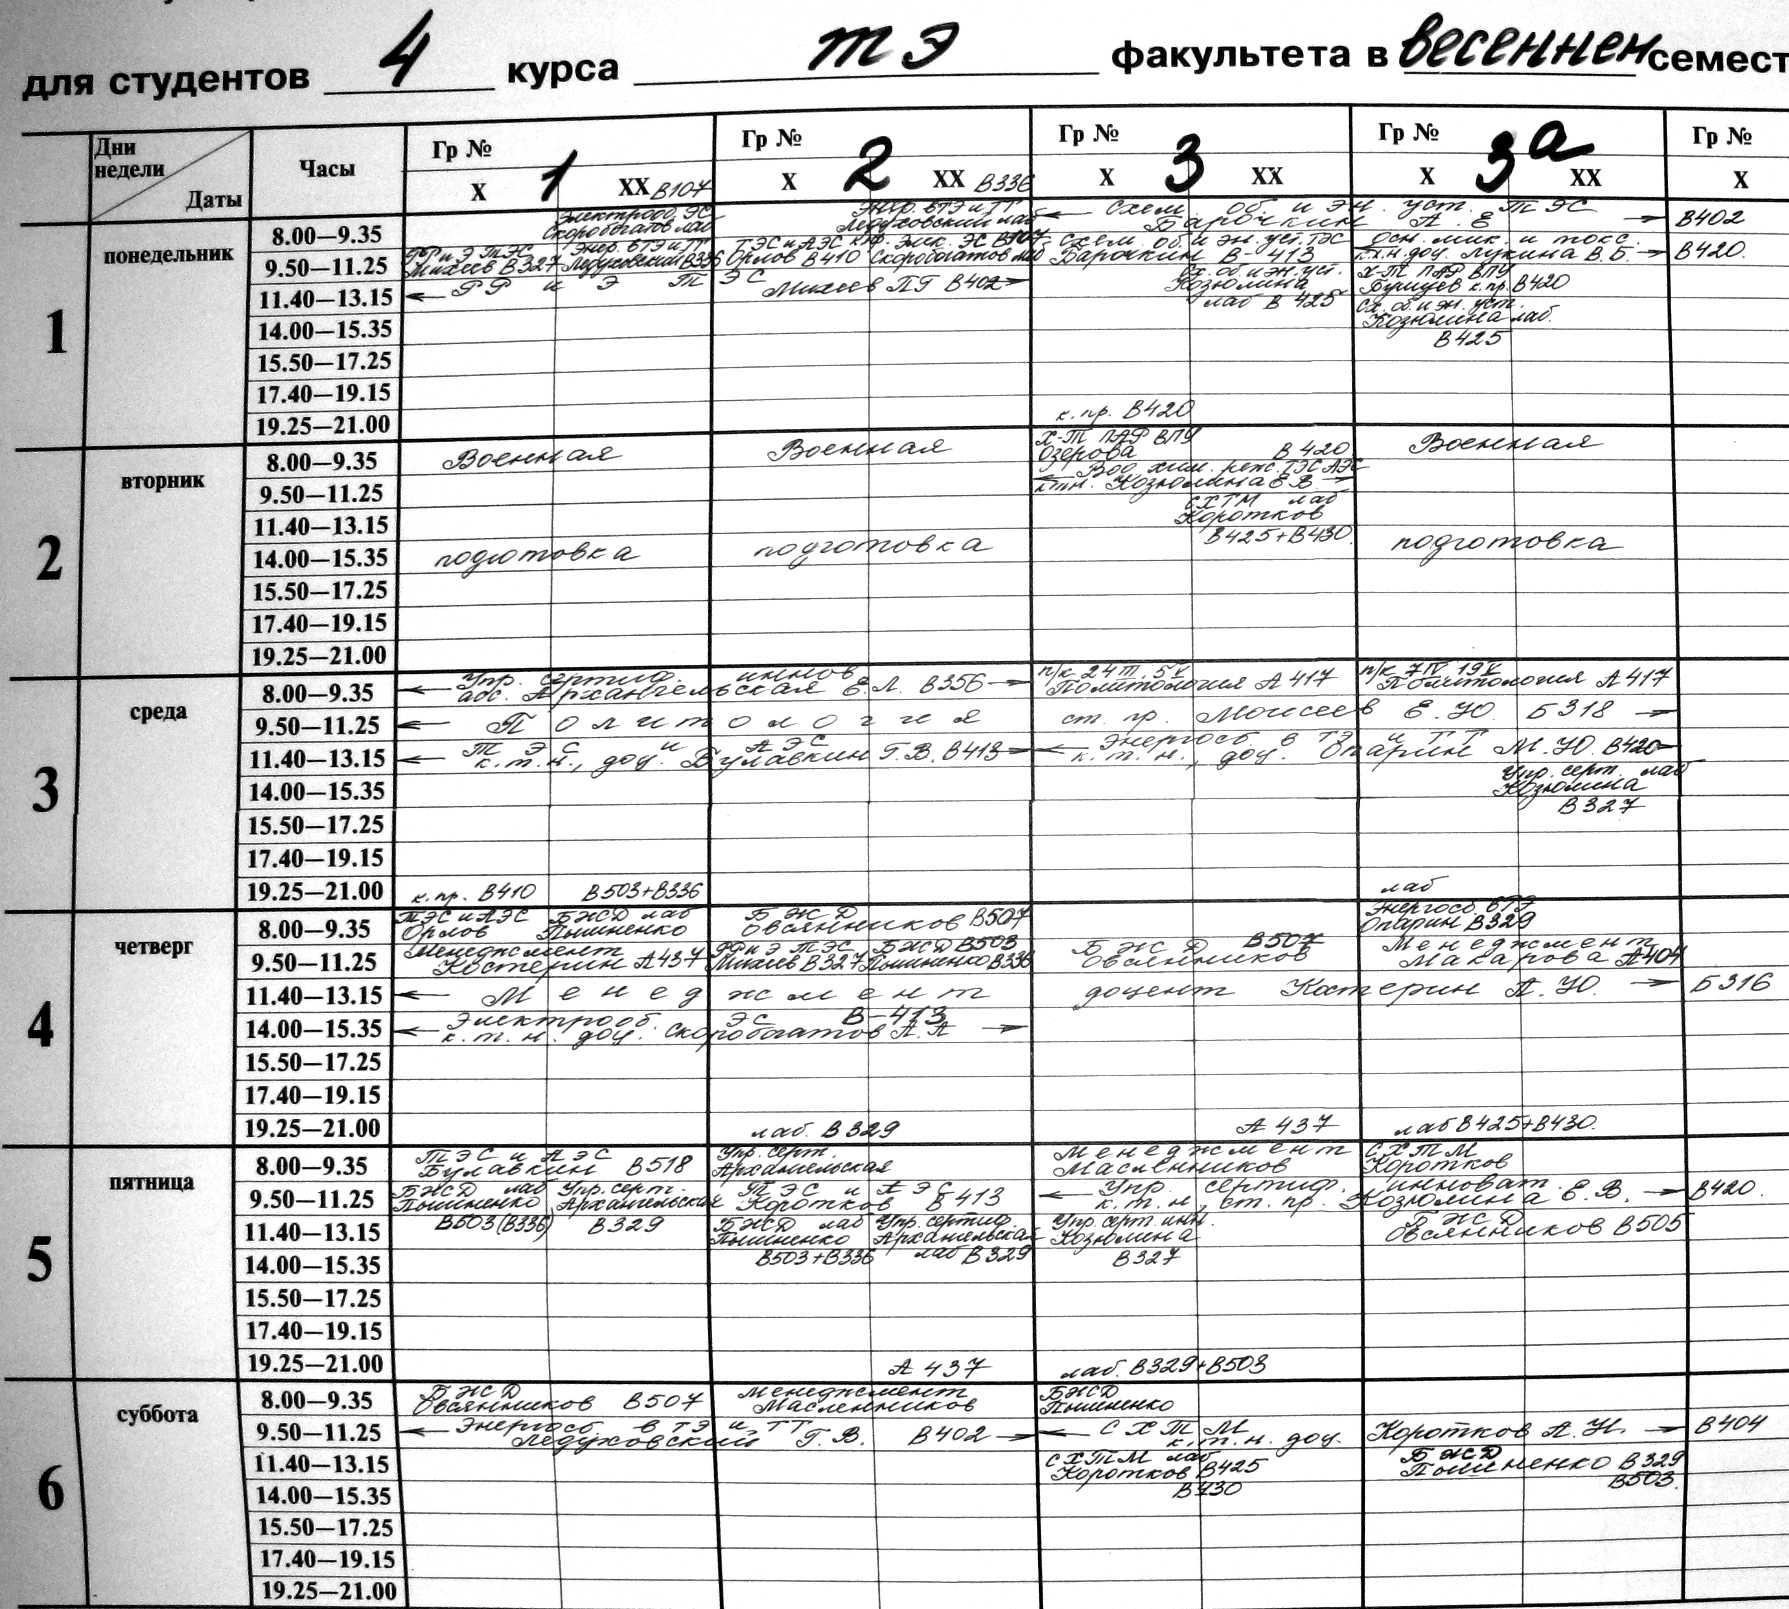 для студентов 4 курса ТЭ факультета в весеннем семест
Дни недели Даты Часы Гр № 1 Гр № 2 Гр № 3 Гр № 3а Гр №
X XX X XX X XX X XX X
В107 В336
понедельник
1
8.00—9.35 Электрооб. ЭС Скоробогатов лаб Ледуховский лаб ← Схем об и эн. уст. ТЭС Барочкин А. Е → В402
9.50—11.25 Михеев В327 Энер. в ТЭ и ТТ Ледуховский В336 ТЭС и АЭС к.пр. Орлов В410 Элек. ЭС В107 Скоробогатов лаб Схем. об. и эн. уст. ТЭС Барочкин В-413 Осн. мик. и токс. к.х.н. доц. Лукина В.Б. → В420.
11.40—13.15 ← РР и Э ТЭС Михеев ПГ В402 → Сх. об. и эн. уст. Козюлина лаб В425 Х-Т ПАР ВПУ Бушуев к.пр. В420
14.00—15.35 Сх. об. и эн. уст. Козюлина лаб. В425
15.50—17.25
17.40—19.15
19.25—21.00
к.пр. В420
вторник
2
8.00—9.35 Военная Военная Х-Т ПАР ВПУ Озерова В420 Военная
9.50—11.25 ← Вод. хим. реж. ТЭС АЭС к.т.н. Козюлина Е В →
11.40—13.15 СХТМ лаб Коротков В425+В430.
14.00—15.35 подготовка подготовка подготовка
15.50—17.25
17.40—19.15
19.25—21.00
среда
3
8.00—9.35 ← Упр. сертиф. иннов. асс. Архангельская Е.Л. В356 → п/к Политология А417 п/к Политология А417
9.50—11.25 ← Политология ст. пр. Моисеев Е. Ю. Б318 →
11.40—13.15 ← ТЭС и АЭС к.т.н., доц. Булавкин Г.В. В413 → ← Энергосб в ТЭ и ТТ к.т.н., доц. Опарин М.Ю. В420
14.00—15.35 Упр. серт. лаб Козюлина В327
15.50—17.25
17.40—19.15
19.25—21.00
к.пр. В410 В503+В336 лаб
четверг
4
8.00—9.35 ТЭС и АЭС Орлов БЖД лаб Пышненко БЖД Овсянников В507 Энергосб в ТЭ Опарин В329
9.50—11.25 Менеджмент Костерин А437 Михеев В327 БЖД В503 Пышненко В336 БЖД В507 Овсянников Менеджмент Макарова А404
11.40—13.15 ← Менеджмент доцент Костерин А. Ю. → Б316
14.00—15.35 ← Электрооб. ЭС В-413 к.т.н. доц. Скоробогатов А.А →
15.50—17.25
17.40—19.15
19.25—21.00
лаб. В329 А437 лаб В425+В430.
пятница
5
8.00—9.35 ТЭС и АЭС Булавкин В518 Упр. серт. Архангельская Менеджмент Масленников СХТМ Коротков
9.50—11.25 БЖД лаб Пышненко В503 (В336) Упр. серт. Архангельская В329 ТЭС и АЭС Коротков Б413 ← Упр. сертиф. инноват. к.т.н, ст. пр. Козюлина Е.В. → В420.
11.40—13.15 БЖД лаб Пышненко В503+В336 Упр. сертиф. Архангельская лаб В329 Упр. серт. инн. Козюлина В327 БЖД Овсянников В505
14.00—15.35
15.50—17.25
17.40—19.15
19.25—21.00
А437 лаб. В329+В503
суббота
6
8.00—9.35 БЖД Овсянников В507 Менеджмент Масленников БЖД Пышненко
9.50—11.25 ← Энергосб. в ТЭ и ТТ Ледуховский Г. В. В402 → ← СХТМ к.т.н. доц. Коротков А. Н. → В404
11.40—13.15 СХТМ лаб Коротков В425 В430 БЖД Пышненко В329 В503.
14.00—15.35
15.50—17.25
17.40—19.15
19.25—21.00